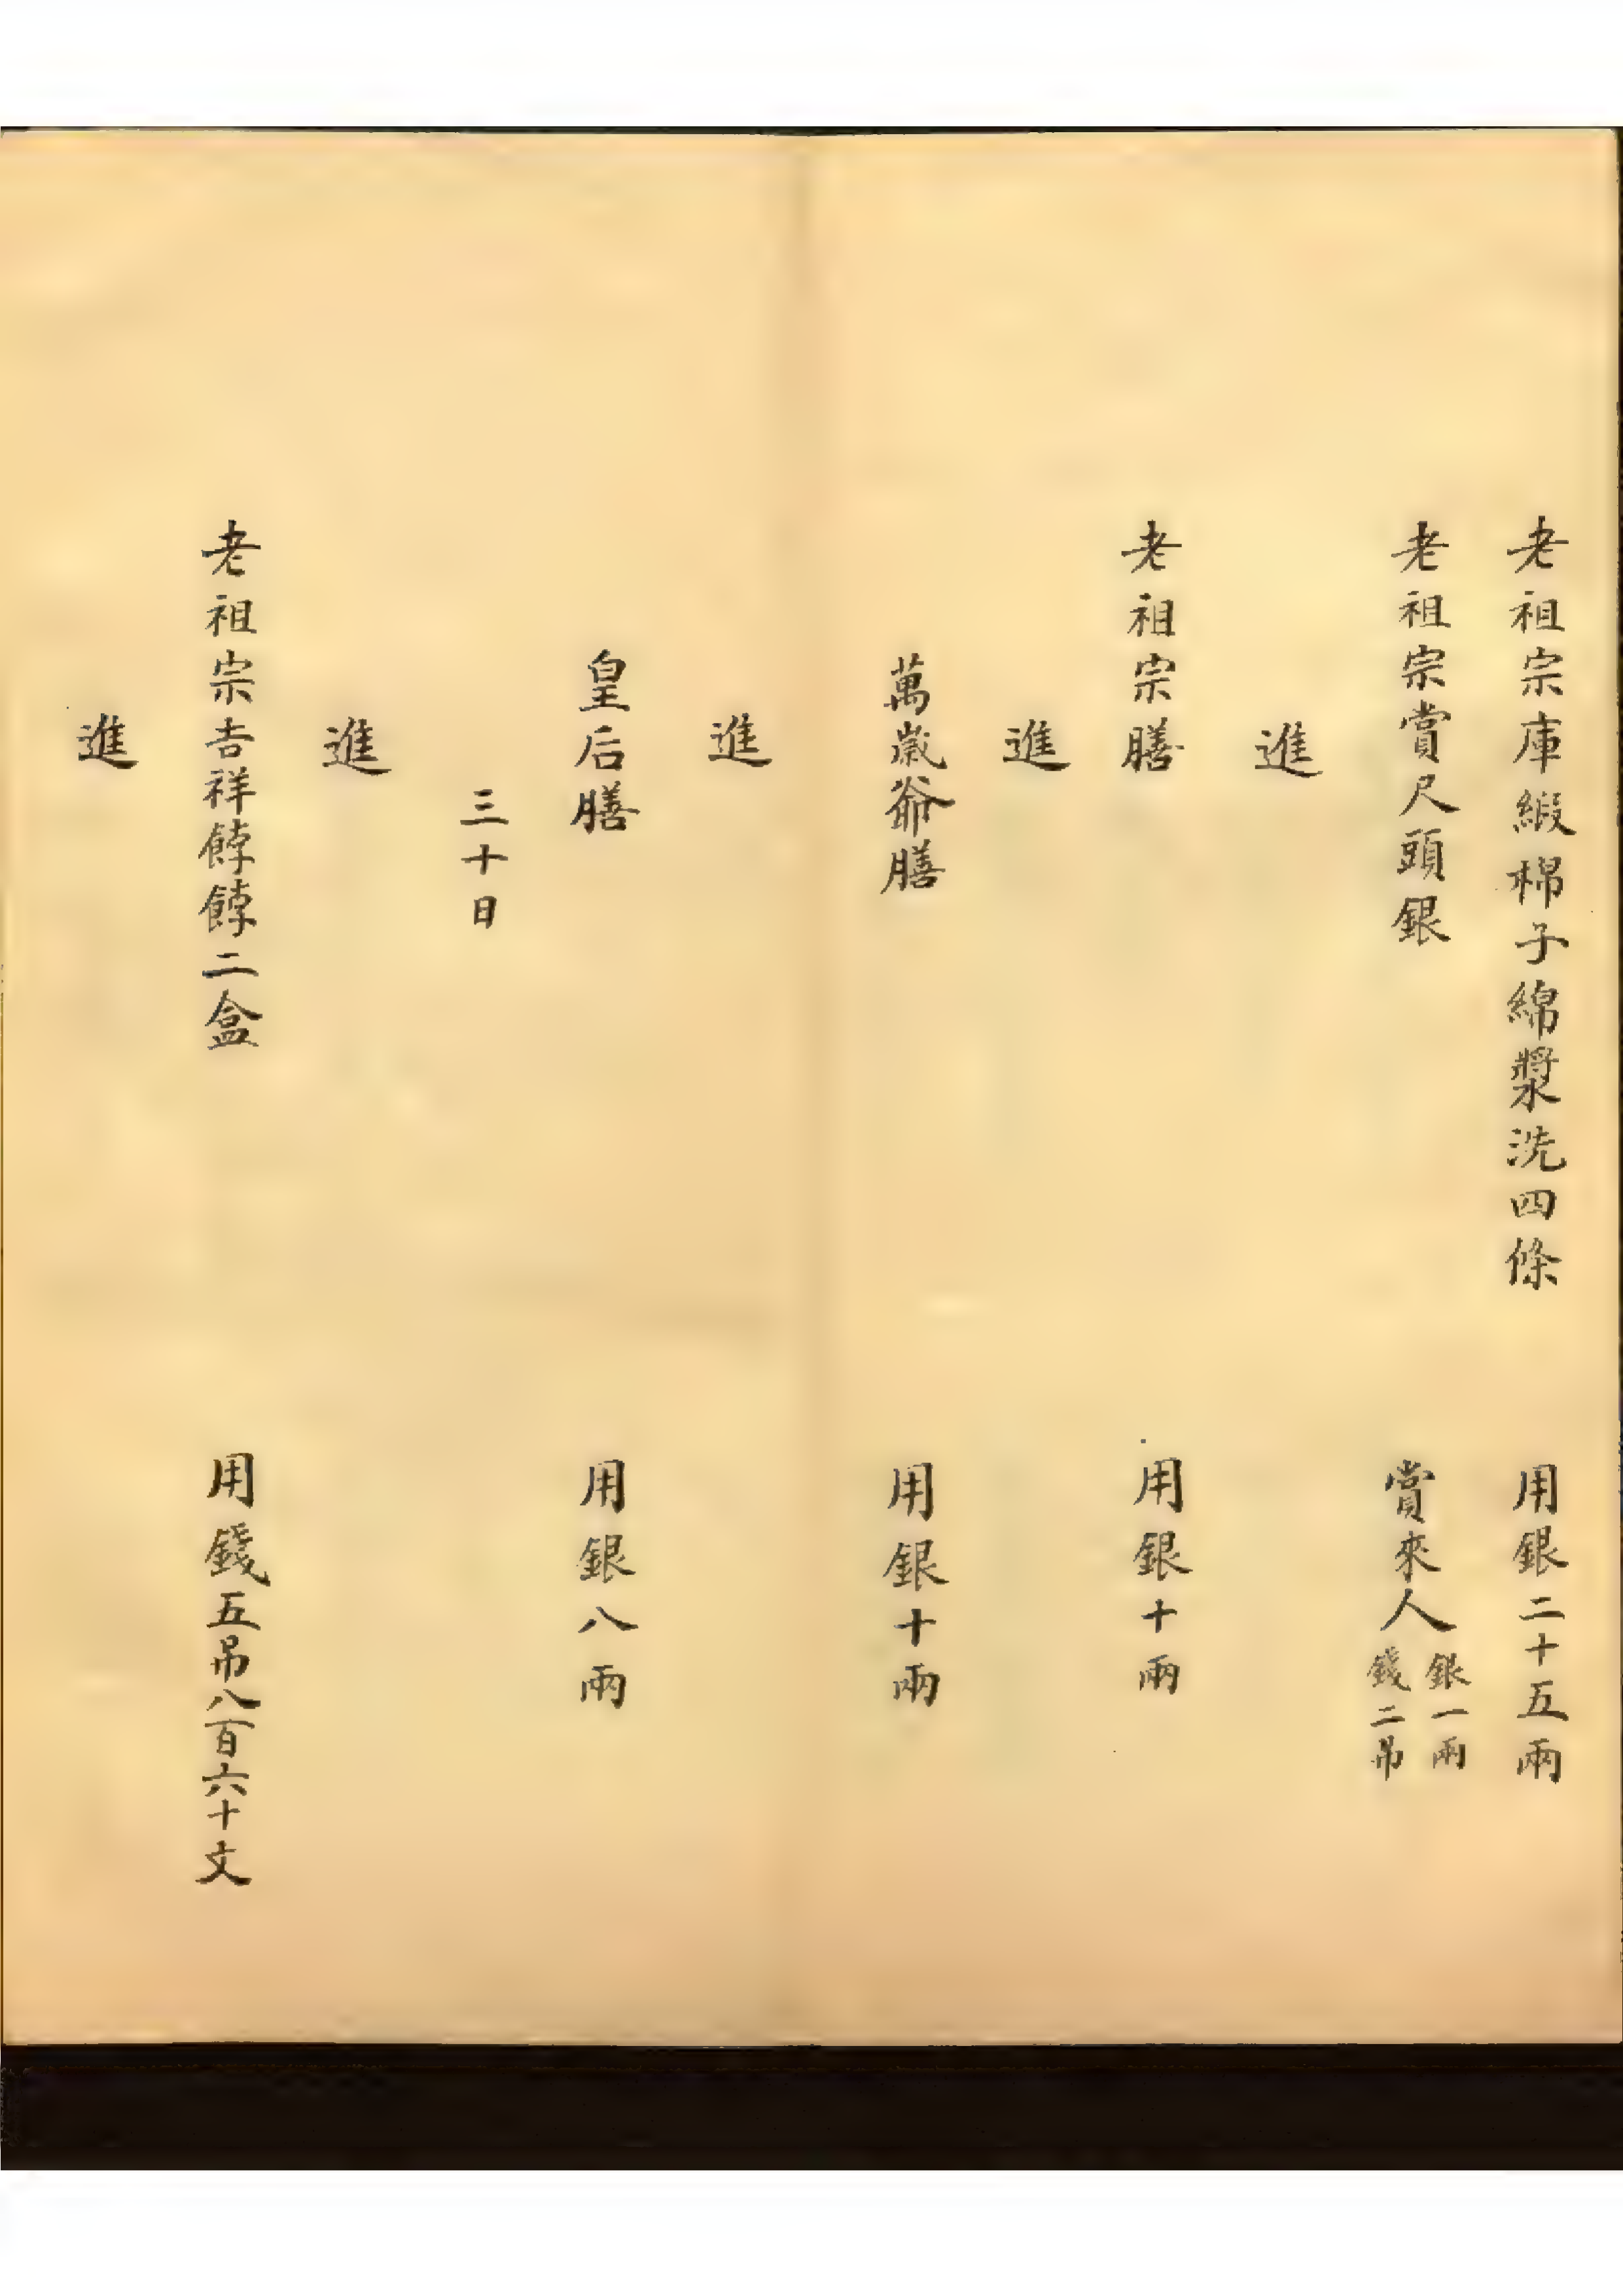 老祖宗庫緞棉子綿漿洗四條 用銀二十五兩
老祖宗賞尺頭銀 賞來人 銀一兩 錢二吊
進
老祖宗膳 用銀十兩
進
萬歲爺膳 用銀十兩
進
皇后膳 用銀八兩
三十日
進
老祖宗吉祥餑餑二盒 用錢五吊八百六十文
進